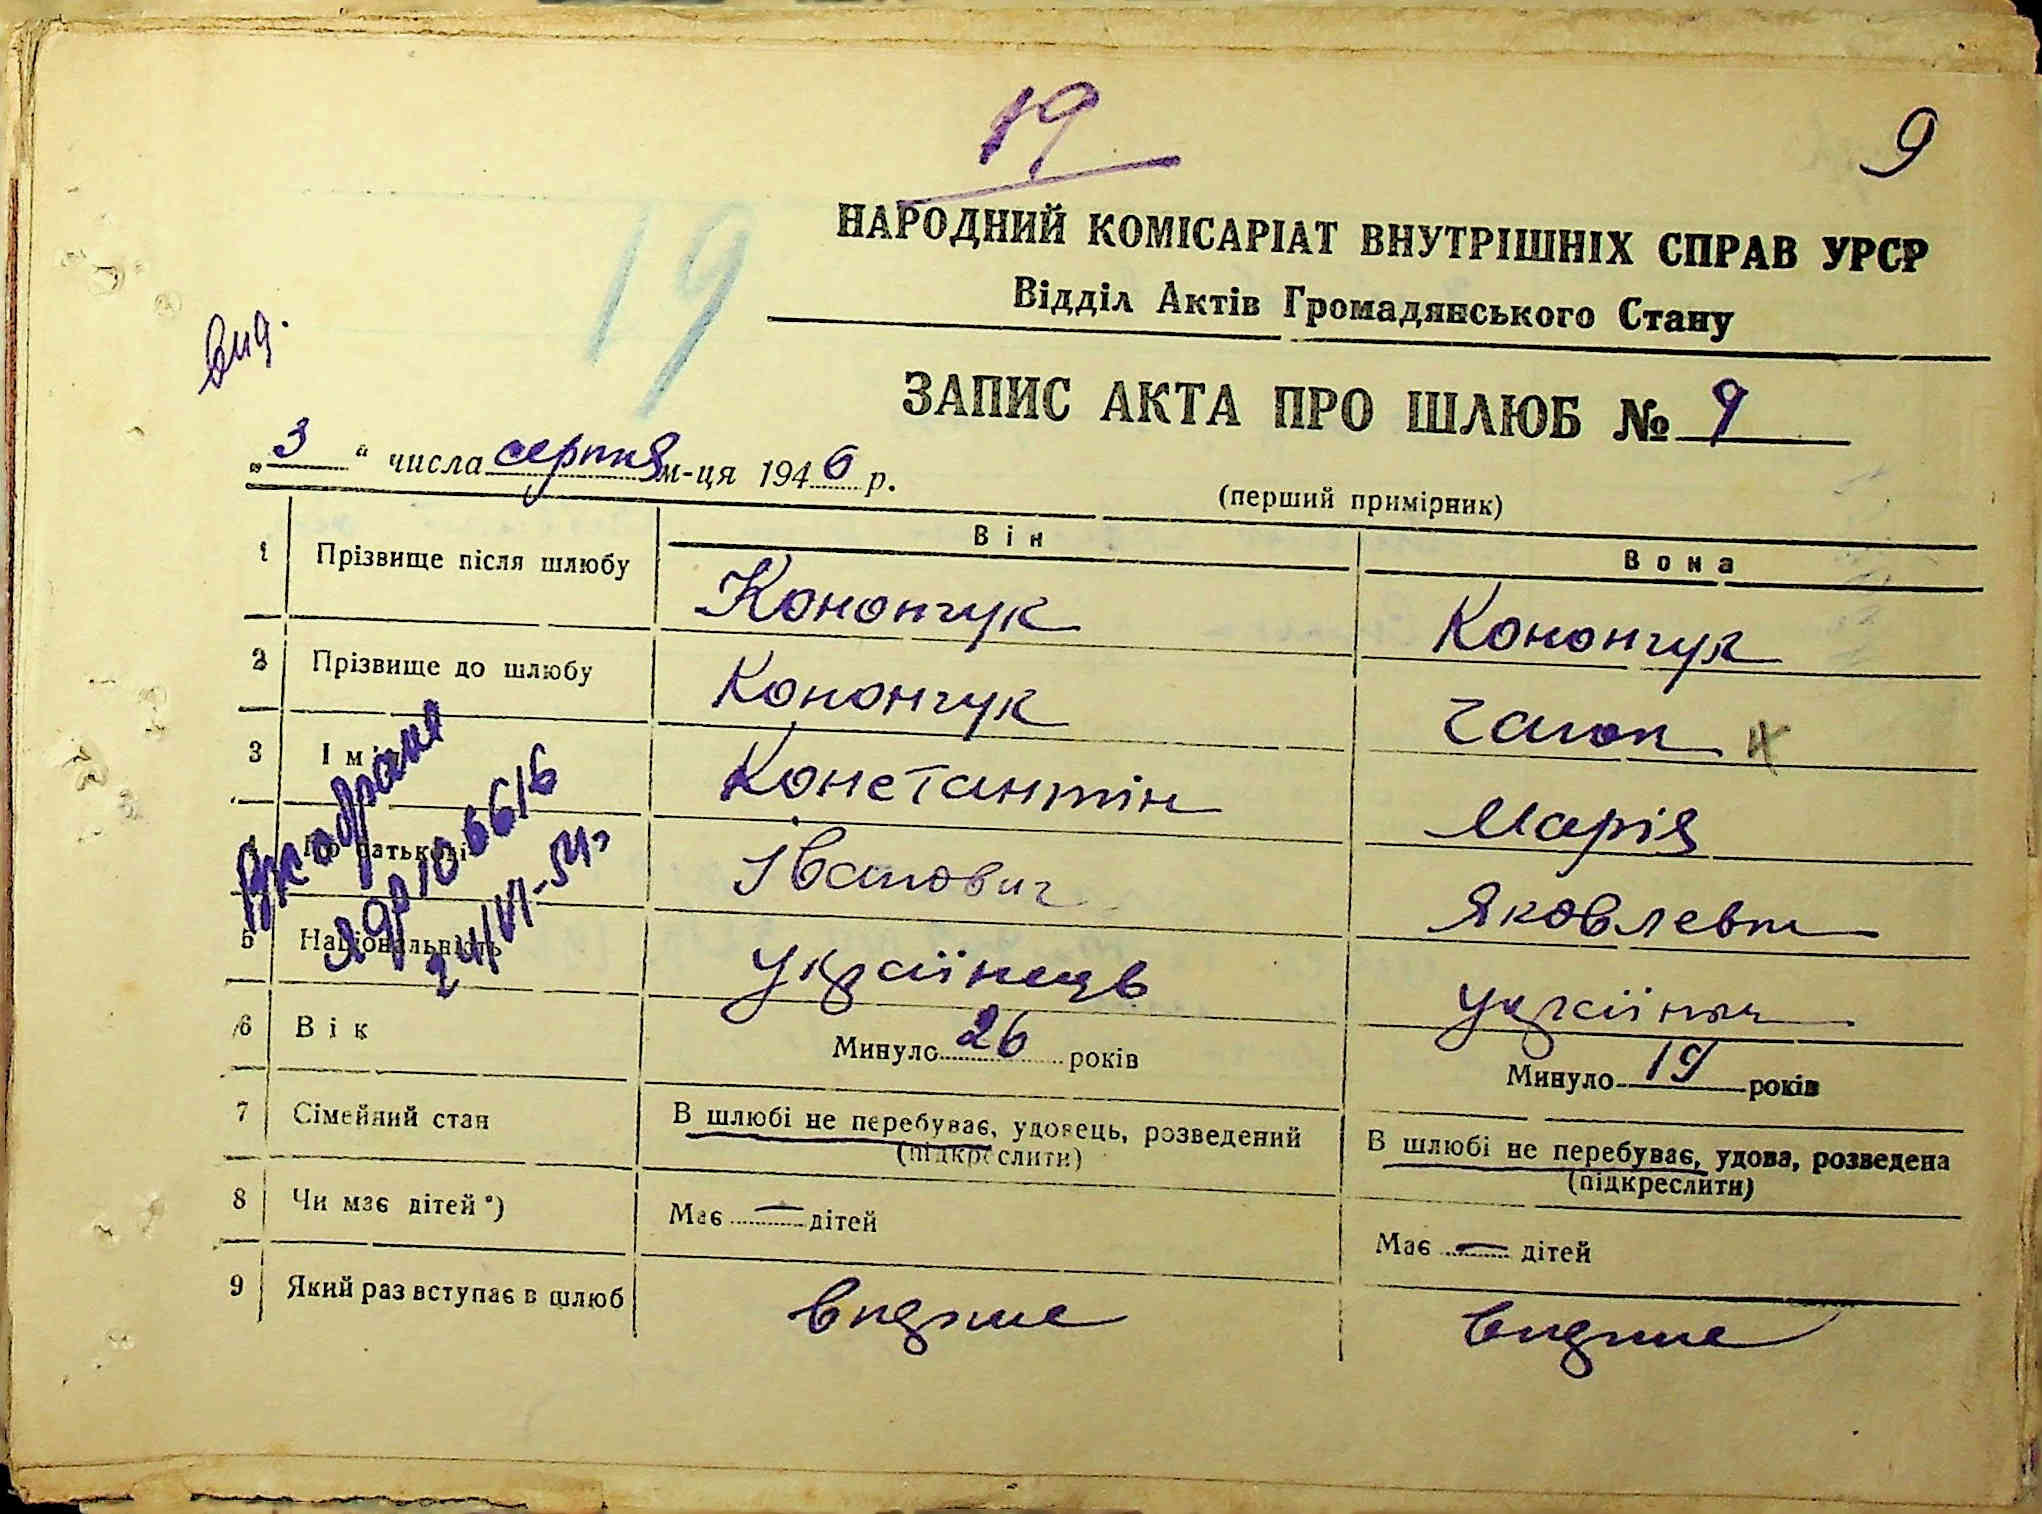 19
9
19
НАРОДНИЙ КОМІСАРІАТ ВНУТРІШНІХ СПРАВ УРСР
Відділ Актів Громадянського Стану
вид.
ЗАПИС АКТА ПРО ШЛЮБ № 9
„ 3 “ числа серпня м-ця 1946 р.
(перший примірник)
Він
Вона
1 Прізвище після шлюбу Конончук Конончук
2 Прізвище до шлюбу Конончук
3 Ім Константін Марія
По батькові Іванович Яковлевна
5 Національність українець українка
6 Вік Минуло 26 років Минуло 19 років
7 Сімейний стан В шлюбі не перебуває, удовець, розведений В шлюбі не перебуває, удова, розведена
(підкреслити) (підкреслити)
8 Чи має дітей*) Має — дітей Має — дітей
9 Який раз вступає в шлюб вперше вперше
24/VI-54г